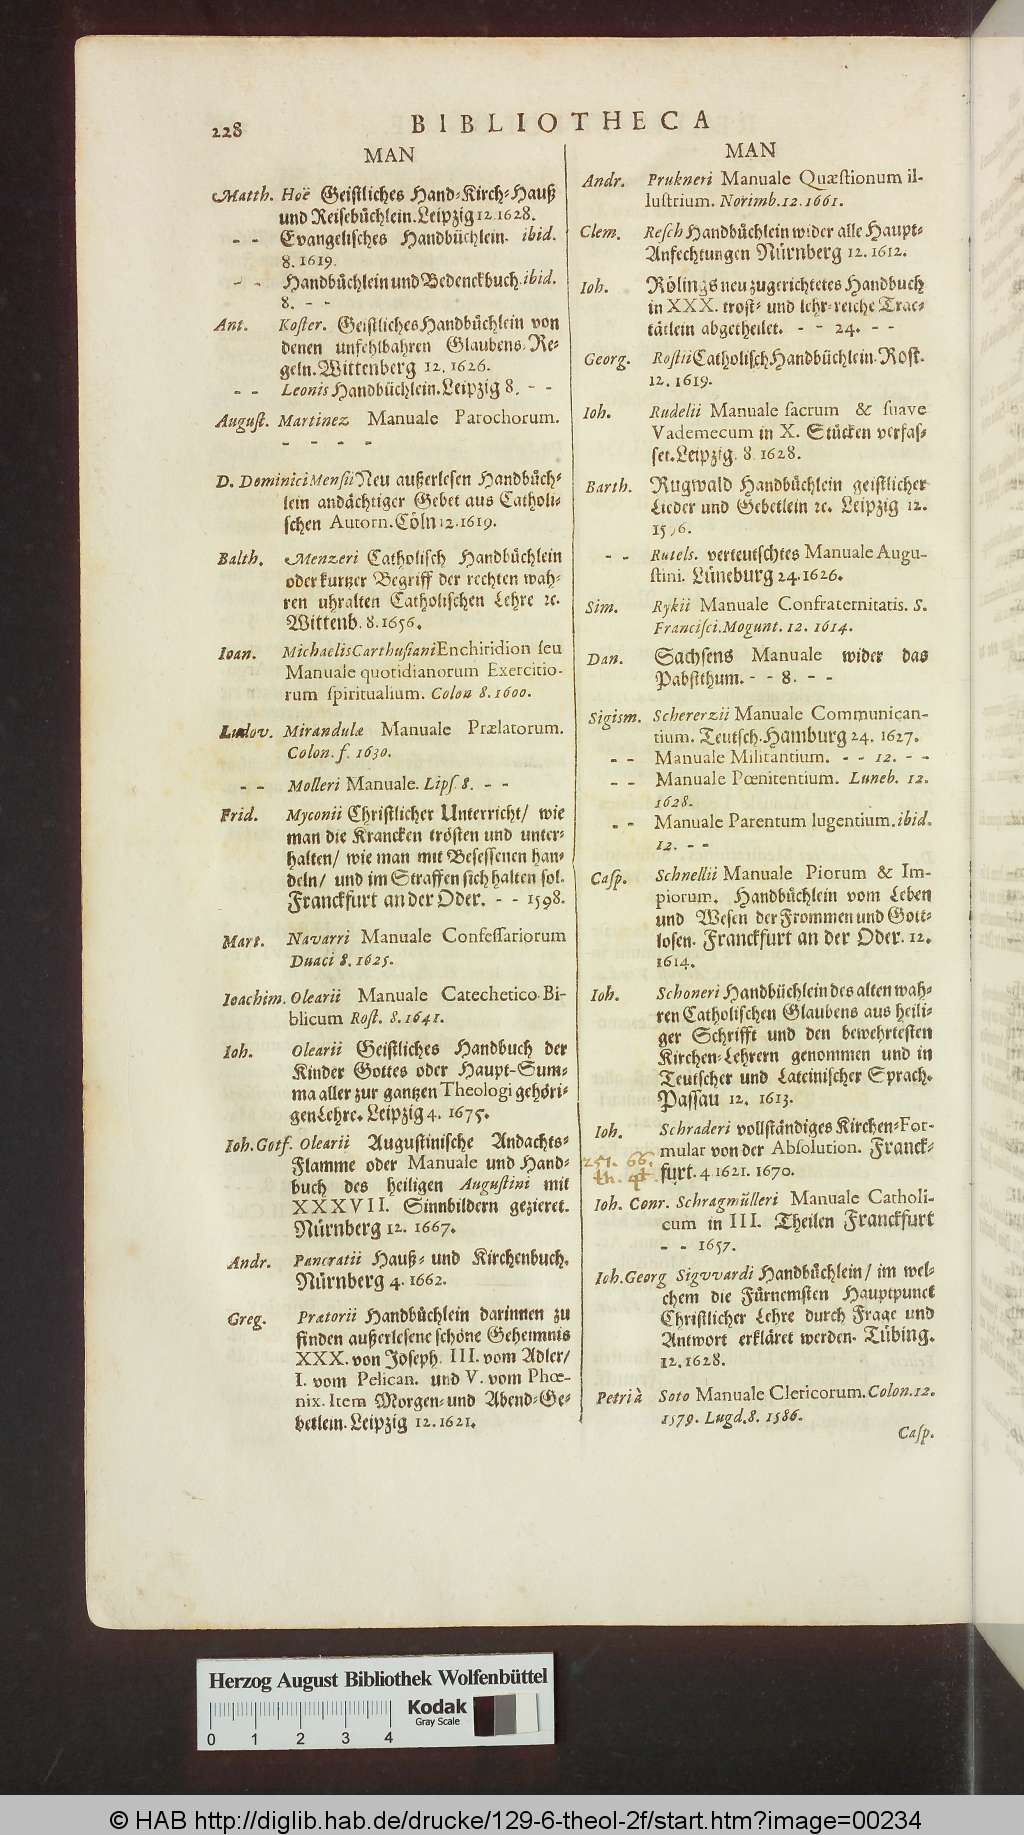 228
BIBLIOTHECA
MAN
Matth. Hoë Geistliches Hand-Kirch-Hauß
und Reisebüchlein. Leipzig 12. 1628.
- - Evangelisches Handbüchlein. ibid.
8. 1619.
- - Handbüchlein und Bedenckbuch. ibid.
8. - -
Ant. Koster. Geistliches Handbüchlein von
denen unfehlbahren Glaubens-Re-
geln. Wittenberg 12. 1626.
- - Leonis Handbüchlein. Leipzig 8. - -
August. Martinez Manuale Parochorum.
- - - -
D. Dominici Mensii Neu außerlesen Handbüch-
lein andächtiger Gebet aus Catholi-
schen Autorn. Cöln 12. 1619.
Balth. Menzeri Catholisch Handbüchlein
oder kurtzer Begriff der rechten wah-
ren uhralten Catholischen Lehre ꝛc.
Wittenb. 8. 1656.
Ioan. Michaelis Carthusiani Enchiridion seu
Manuale quotidianorum Exercitio-
rum spiritualium. Colon 8. 1600.
Ludov. Mirandulæ Manuale Prælatorum.
Colon. f. 1630.
- - Molleri Manuale. Lips. 8. - -
Frid. Myconii Christlicher Unterricht/ wie
man die Krancken trösten und unter-
halten/ wie man mit Besessenen han-
deln/ und im Straffen sich halten sol.
Franckfurt an der Oder. - - 1598.
Mart. Navarri Manuale Confessariorum
Duaci 8. 1625.
Ioachim. Olearii Manuale Catechetico-Bi-
blicum Rost. 8. 1641.
Ioh. Olearii Geistliches Handbuch der
Kinder Gottes oder Haupt-Sum-
ma aller zur gantzen Theologi gehöri-
gen Lehre. Leipzig 4. 1675.
Ioh. Gotf. Olearii Augustinische Andachts-
Flamme oder Manuale und Hand-
buch des heiligen Augustini mit
XXXVII. Sinnbildern gezieret.
Nürnberg 12. 1667.
Andr. Pancratii Hauß- und Kirchenbuch.
Nürnberg 4. 1662.
Greg. Prætorii Handbüchlein darinnen zu
finden außerlesene schöne Geheimnis
XXX. von Joseph. III. vom Adler/
I. vom Pelican. und V. vom Phœ-
nix. Item Morgen- und Abend-Ge-
betlein. Leipzig 12. 1621.
MAN
Andr. Prukneri Manuale Quæstionum il-
lustrium. Norimb. 12. 1661.
Clem. Resch Handbüchlein wider alle Haupt-
Anfechtungen Nürnberg 12. 1612.
Ioh. Rölings neu zugerichtetes Handbuch
in XXX. trost- und lehr-reiche Trac-
tätlein abgetheilet. - - 24. - -
Georg. Rostii Catholisch Handbüchlein. Rost.
12. 1619.
Ioh. Rudelii Manuale sacrum & suave
Vademecum in X. Stücken verfas-
set. Leipzig. 8. 1628.
Barth. Rugwald Handbüchlein geistlicher
Lieder und Gebetlein ꝛc. Leipzig 12.
- - Rutels. verteutschtes Manuale Augu-
stini. Lüneburg 24. 1626.
Sim. Rykii Manuale Confraternitatis. S.
Francisci. Mogunt. 12. 1614.
Dan. Sachsens Manuale wider das
Pabstthum. - - 8. - -
Sigism. Schererzii Manuale Communican-
tium. Teutsch. Hamburg 24. 1627.
- - Manuale Militantium. - - 12. - -
- - Manuale Pœnitentium. Luneb. 12.
1628.
- - Manuale Parentum lugentium. ibid.
12. - -
Casp. Schnellii Manuale Piorum & Im-
piorum. Handbüchlein vom Leben
und Wesen der Frommen und Gott-
losen. Franckfurt an der Oder. 12.
1614.
Ioh. Schoneri Handbüchlein des alten wah-
ren Catholischen Glaubens aus heili-
ger Schrifft und den bewehrtesten
Kirchen-Lehrern genommen und in
Teutscher und Lateinischer Sprach.
Passau 12. 1613.
Ioh. Schraderi vollständiges Kirchen-For-
mular von der Absolution. Franck-
furt. 4 1621. 1670.
251. 66.
th. 4t.
Ioh. Conr. Schragmülleri Manuale Catholi-
cum in III. Theilen Franckfurt
- - 1657.
Ioh. Georg Sigvvardi Handbüchlein/ im wel-
chem die Fürnemsten Hauptpunct
Christlicher Lehre durch Frage und
Antwort erkläret werden. Tübing.
12. 1628.
Petri à Soto Manuale Clericorum. Colon. 12.
1579. Lugd. 8. 1586.
Casp.
Herzog August Bibliothek Wolfenbüttel
Kodak
Gray Scale
0 1 2 3 4
© HAB http://diglib.hab.de/drucke/129-6-theol-2f/start.htm?image=00234